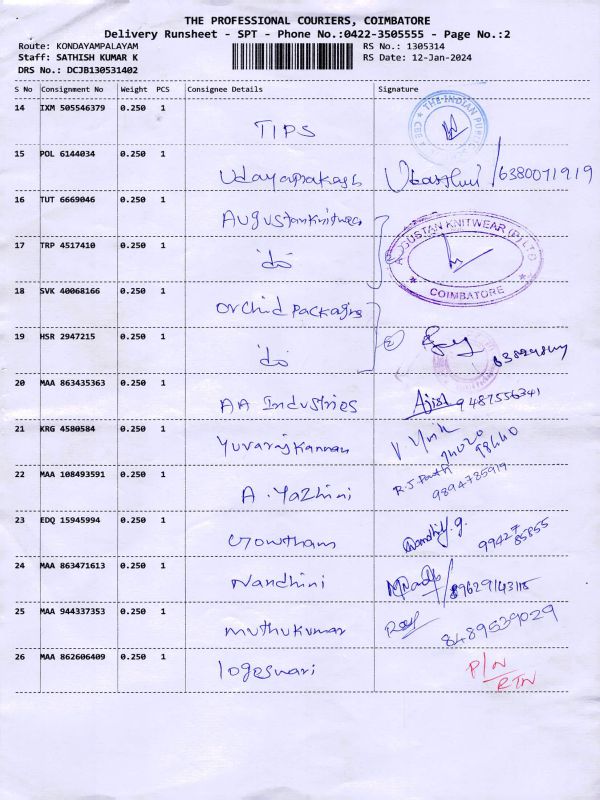 THE PROFESSIONAL COURIERS, COIMBATORE
Delivery Runsheet - SPT - Phone No.:0422-3505555 - Page No.:2
Route: KONDAYAMPALAYAM RS No.: 1305314
Staff: SATHISH KUMAR K RS Date: 12-Jan-2024
DRS No.: DCJB130531402
S No Consignment No Weight PCS Consignee Details Signature
14 IXM 505546379 0.250 1 TIPS THE INDIAN PUBLIC CBE
15 POL 6144034 0.250 1 Udayaprakash 6380071919
16 TUT 6669046 0.250 1 Augustanknitwear
17 TRP 4517410 0.250 1 do AUGUSTAN KNITWEAR (P) LTD COIMBATORE
18 SVK 40068166 0.250 1 Orchid Packaging
19 HSR 2947215 0.250 1 do 2
20 MAA 863435363 0.250 1 AA Industries Ajish 9487556341
21 KRG 4580584 0.250 1 Yuvarajkannan 94020 98440
22 MAA 108493591 0.250 1 A. Yazhini R.S. 9894785919
23 EDQ 15945994 0.250 1 Gowtham 99427 85855
24 MAA 863471613 0.250 1 Nandhini 89629143115
25 MAA 944337353 0.250 1 muthukumar 8489539029
26 MAA 862606409 0.250 1 logeswari P/N RTN